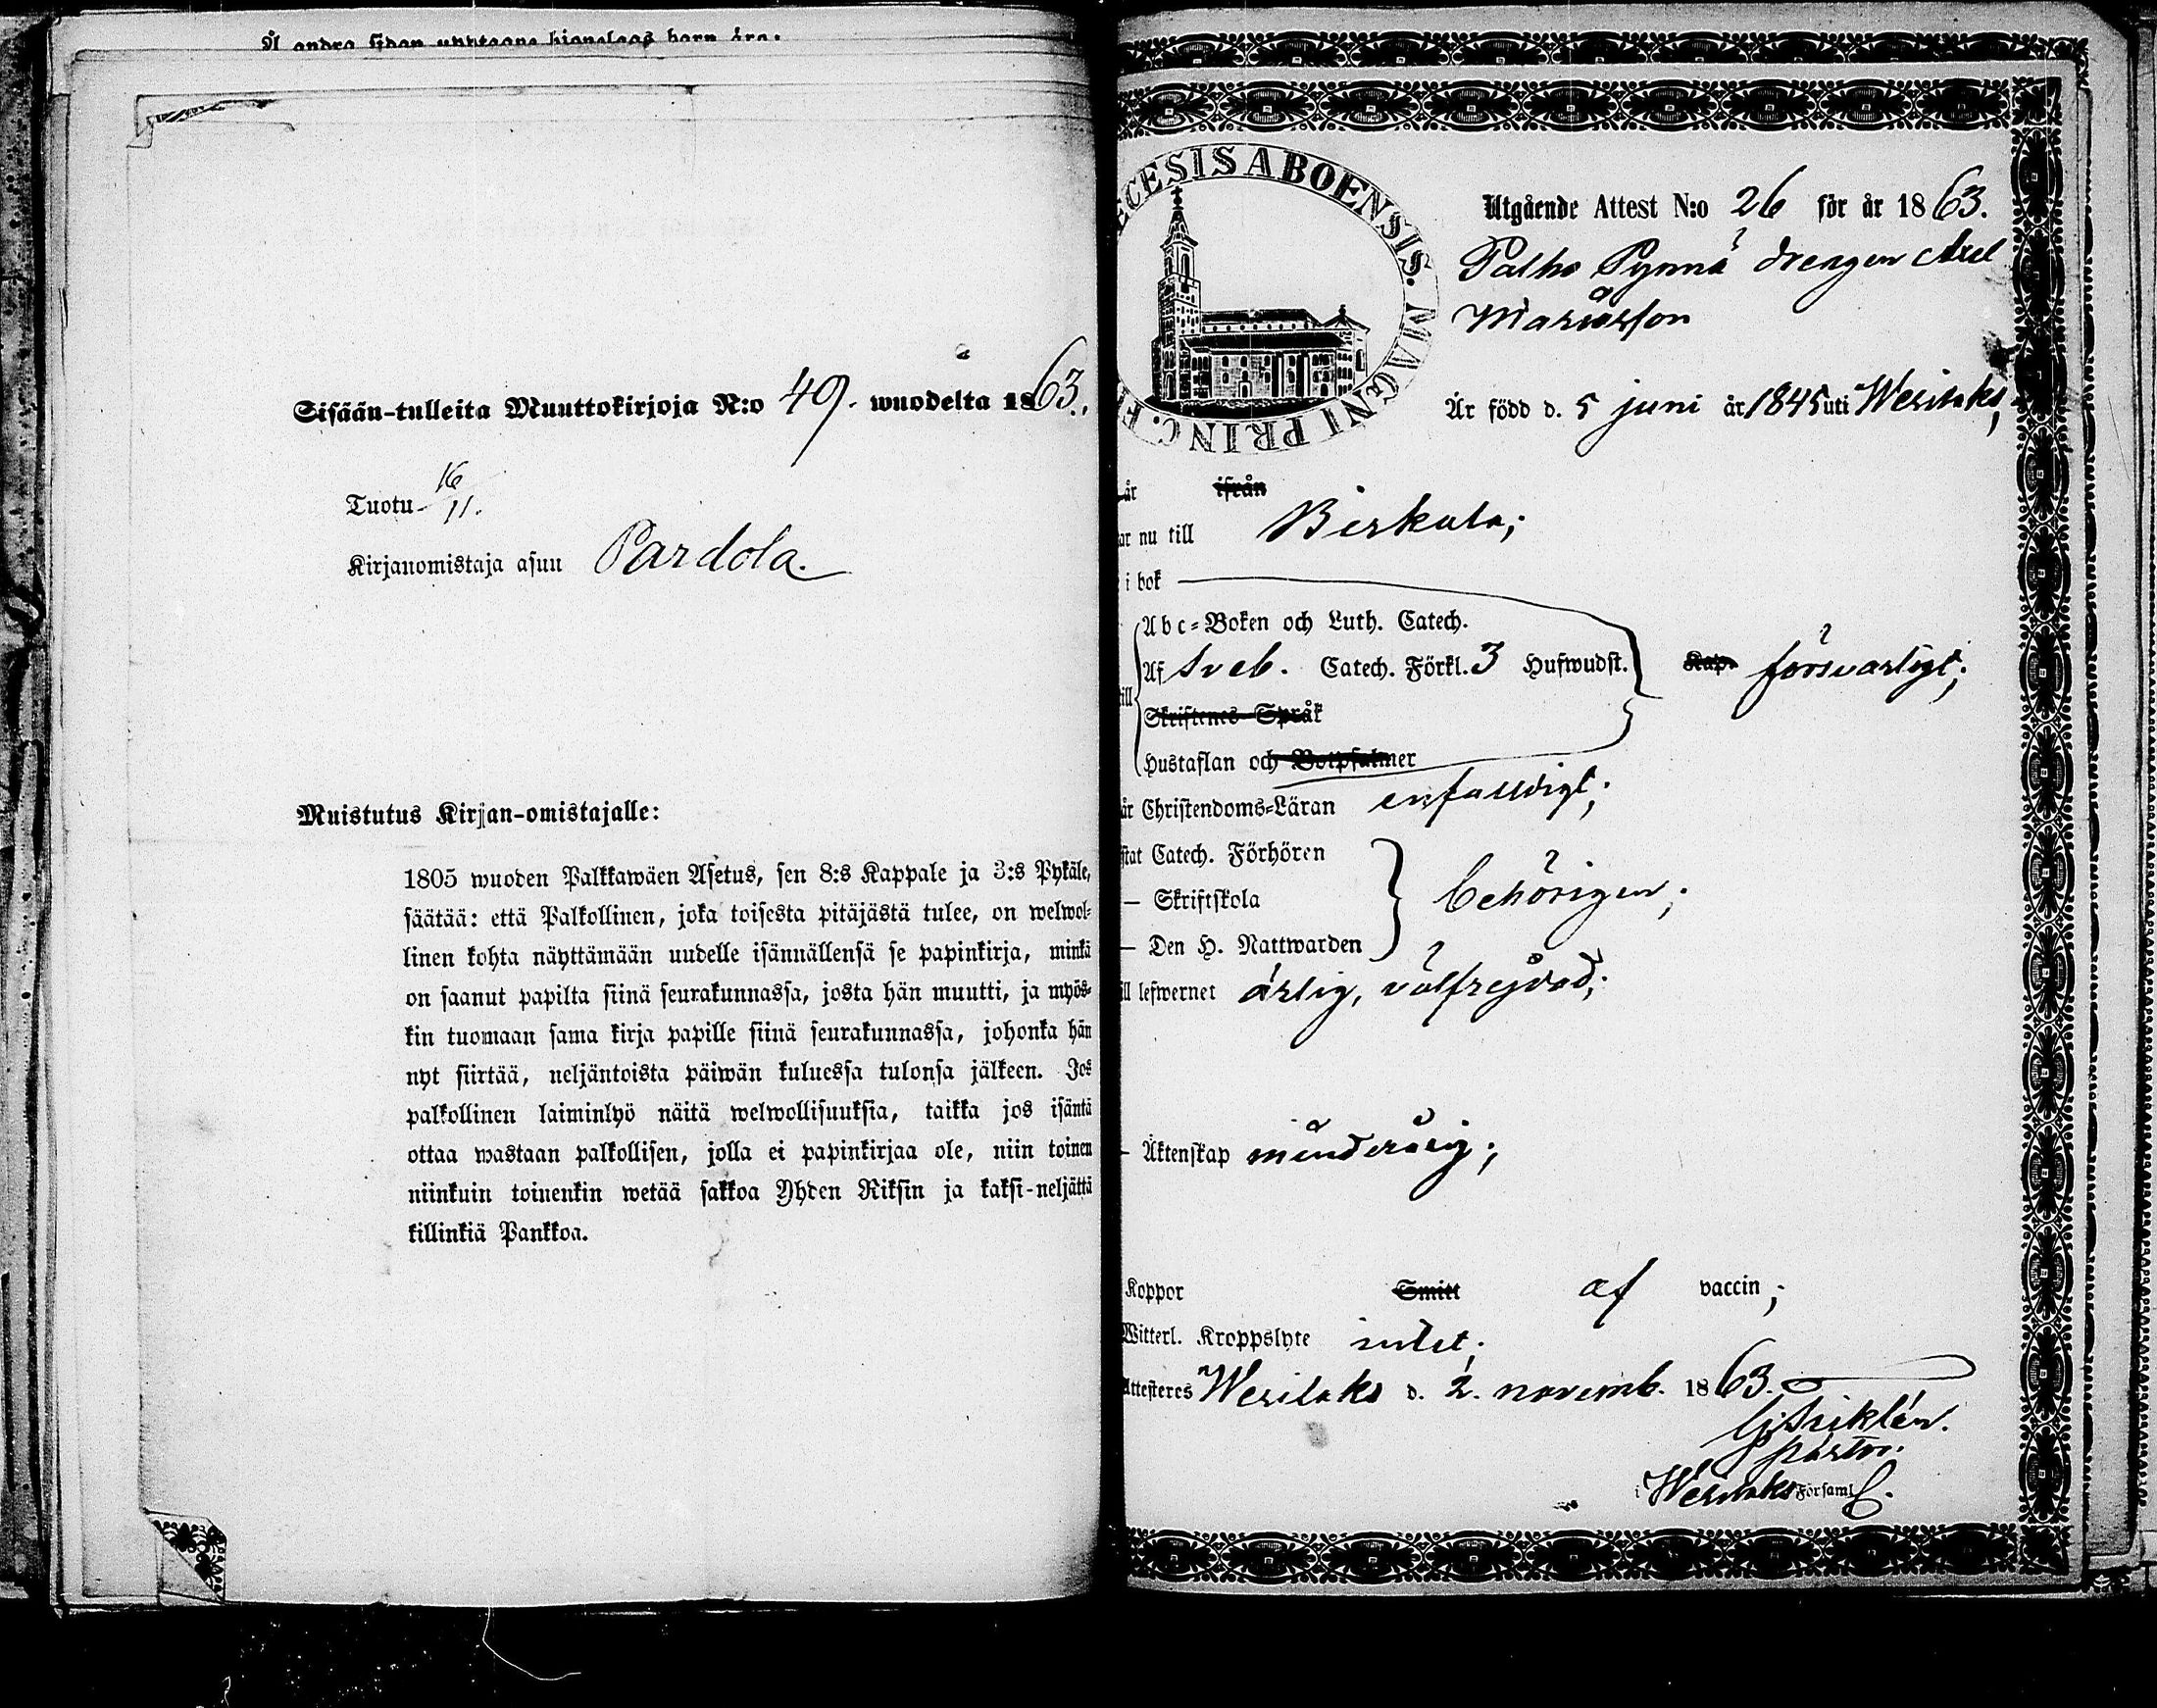 Å andra sidan upptagne hjonelags barn äro:
Sisään-tulleita Muuttokirjoja N:o 49. wuodelta 1863.
Tuotu 16/11.
Kirjanomistaja asuu Pardola.
Muistutus Kirjan-omistajalle:
1805 wuoden Palkkawäen Asetus, sen 8:s Kappale ja 3:s Pykäle,
säätää: että Palkollinen, joka toisesta pitäjästä tulee, on welwol-
linen kohta näyttämään uudelle isännällensä se papinkirja, minkä
on saanut papilta siinä seurakunnassa, josta hän muutti, ja myös-
kin tuomaan sama kirja papille siinä seurakunnassa, johonka hän
nyt siirtää, neljäntoista päiwän kuluessa tulonsa jälkeen. Jos
palkollinen laiminlyö näitä welwollisuuksia, taikka jos isäntä
ottaa wastaan palkollisen, jolla ei papinkirjaa ole, niin toinen
niinkuin toinenkin wetää sakkoa Yhden Riksin ja kaksi-neljättä
killinkiä Pankkoa.
ECESIS ABOENSIS. MAGNI PRINC. F
Utgående Attest N:o 26 för år 1863.
Palho Pynnä drengen Axel
Mariæson
Är född d. 5 juni år 1845 uti Wesilaks,
år ifrån
ar nu till Birkala;
i bok
Abc-Boken och Luth. Catech.
Af Sveb. Catech. Förkl. 3 Hufwudst. Kap. försvarligt;
till
Skriftenes Språk
Hustaflan och Botpsalmer
år Christendoms-Läran enfaldigt;
stat Catech. Förhören
— Skriftskola behörigen;
— Den H. Nattwarden
ill lefwernet ärlig, välfrejdad;
- Äktenskap minderårig;
Koppor Smitt af vaccin;
Witterl. Kroppslyte intet;
Attesteres Wesilaks d. 2. novemb. 1863.
pastor.
i Wesilaks Församl.